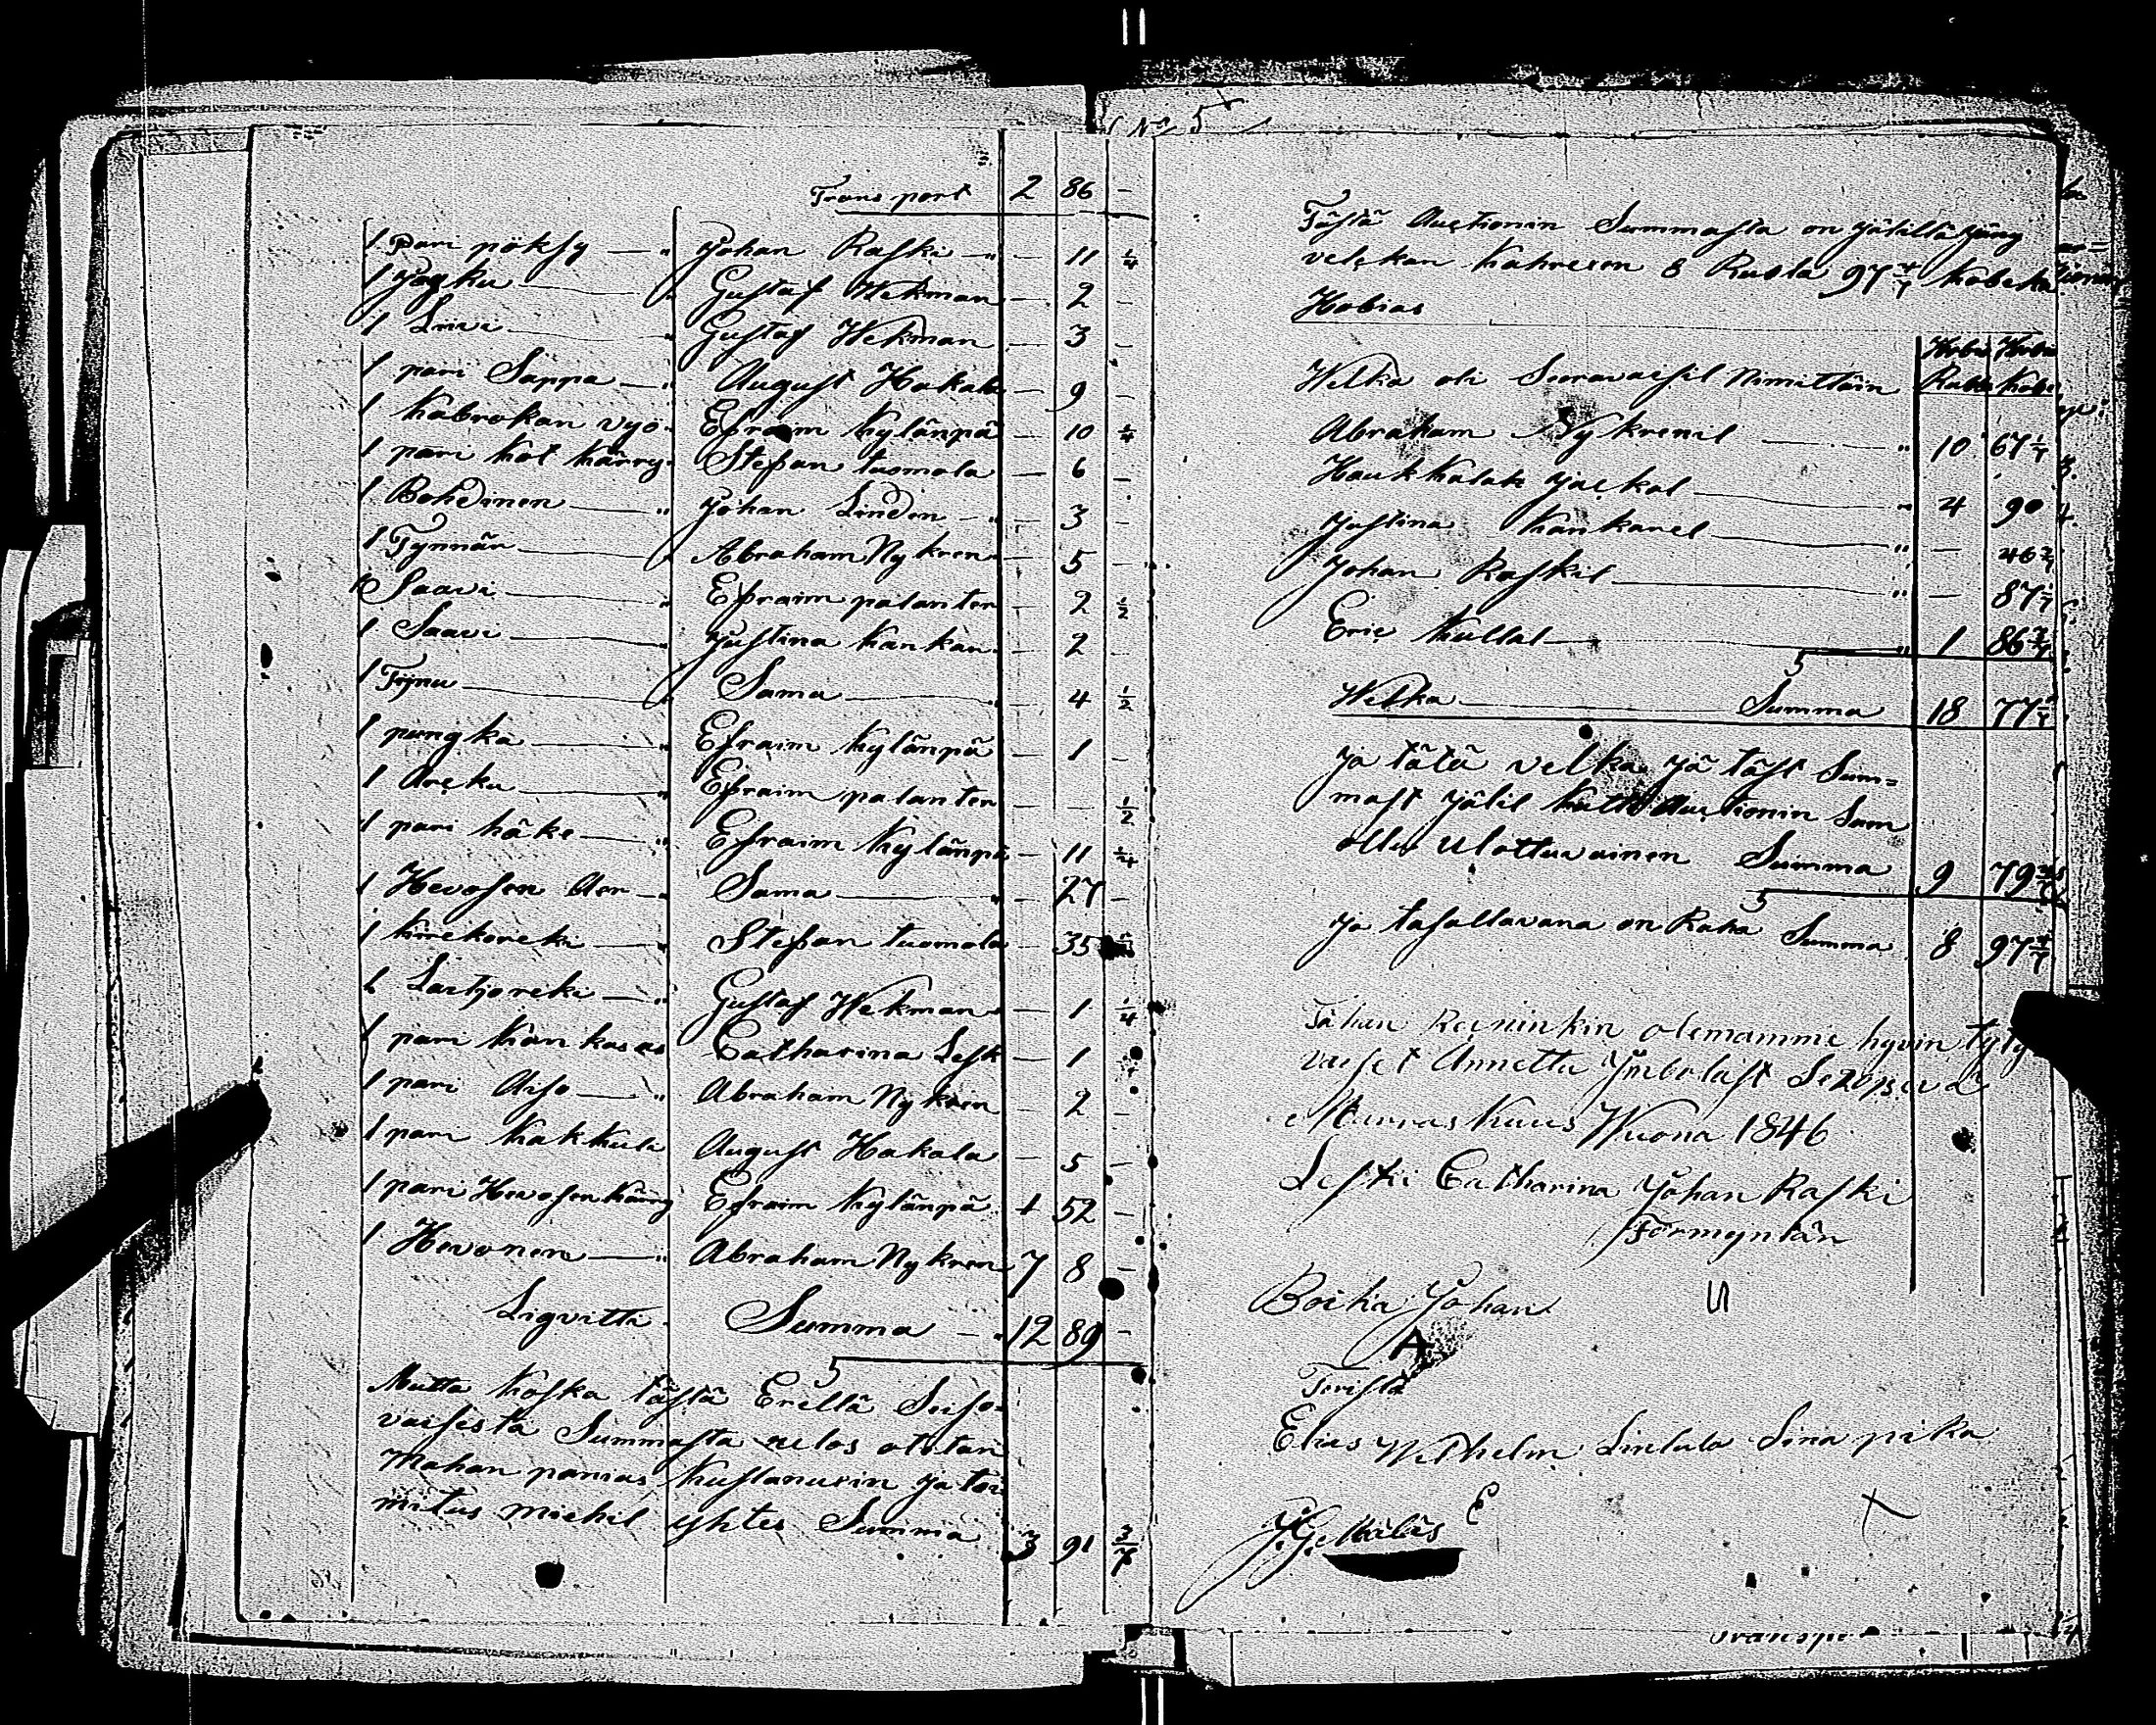 Transport 2 86 –
1 pari pöksy — " Johan Raski — " – 11 1/4
1 Jogku — " Gustaf Wekman – 2 –
1 Liivi — " Gustaf Wekman – 3 –
1 pari Sappa — " August Hakala – 9 –
1 kabrokan vyö " Efraim Kylänpä – 10 1/4
1 pari kot kärry " Stefan tuomola – 6 –
1 Bohdinen — " Johan Linden — " – 3 –
1 Tynnär — " Abraham Nykren – 5 –
1 Saavi — " Efraim palanter – 2 1/2
1 Saavi — " Justina Kankan – 2 –
1 Tijnu — " Sama — " – 4 1/2
1 pungka — " Efraim Kylänpä – 1 –
1 Arcku — " Efraim palanter – – 1/2
1 pari häke — " Efraim Kylänpä – 11 1/4
1 Hevosen Aer — " Sama — " – 27 –
1 kirekoreki — " Stefan tuomola – 35
1 Laitjoreki — " Gustaf Wekman – 1 1/4
1 pari Kankasas Catharina Lesk – 1
1 pari Aiso — " Abraham Nykren – 2 –
1 pari Kakkula August Hakala – 5 –
1 pari Hevosen Käng Efraim Kylänpä 1 52 –
1 Hevonen — " Abraham Nykren 7 8 –
Ligvitti Summa — " 12 89 –
5
Mutta koska tästä Erellä Seiso-
vaisesta Summasta ulos otetan
Mahan panias kustanusin ja toi-
mitus miehil yhtes Summa 3 91 3/7
No 5
Tästä Auctionin Summasta on jälillä jäny
velckan kahresen 8 Rupla 97 4/7 kobeka
Hobias
Welka oli Seuravaisil Nimittäin
Abraham Nykrenil — " 10 67 1/7
Haukkalak Jackal — " 4 90
Justina Kankanel — " – 46 2/7
Johan Raskil — " – 87 1/7
Eric Kullal — " 1 86 2/7
5
Welka — Summa 18 77 1/7
Ja tätä velka jä täst Sum=
mast jälil kuth Auctionin Sum
ollu Ulottuvainen Summa 9 79
5
Ja tasallavana on Raha Summa 8 97 4/7
Tähan Reininkin olemamme hyvin
vaiset Annettu
Marras kuus Wuona 1846
Leski Catharina Johan Raski
Förmyntän
Boika Johan
A
Torista
Elias Wilhelm Lintula Sina pika
E